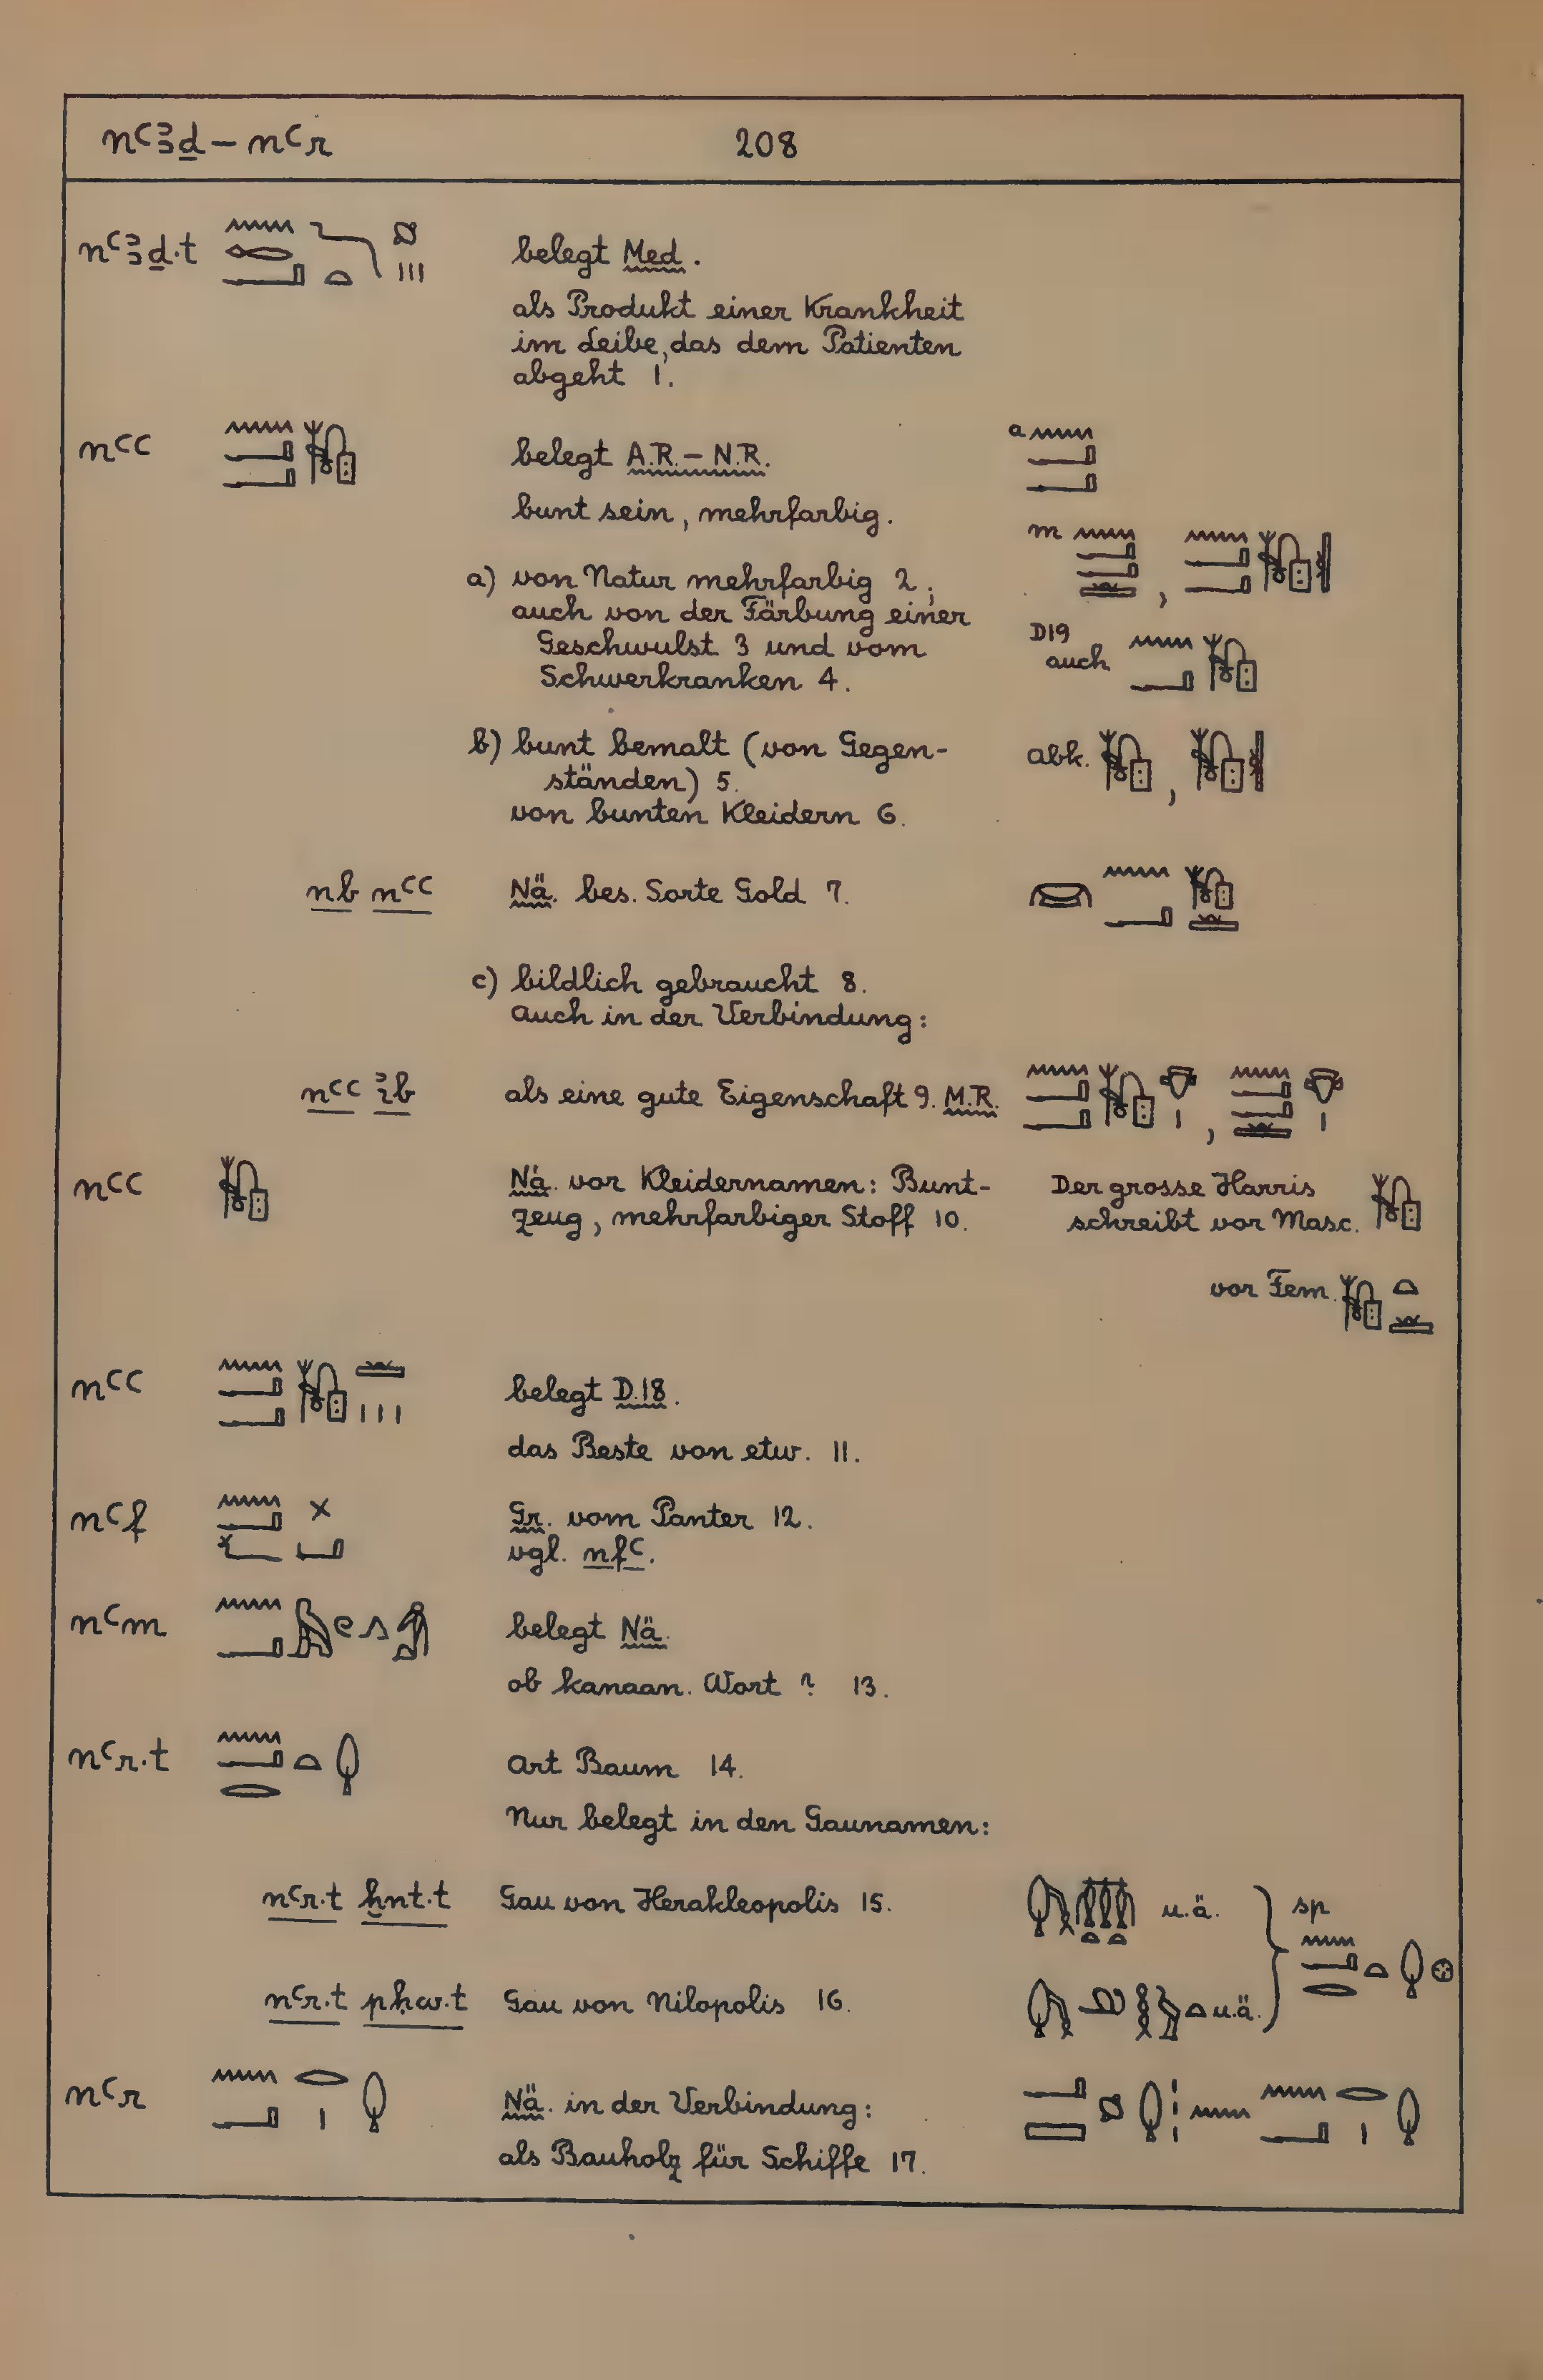 nꜥꜣḏ – nꜥr 208
nꜥꜣḏ.t belegt Med.
als Produkt einer Krankheit
im Leibe, das dem Patienten
abgeht 1.
nꜥꜥ belegt A.R. – N.R. a
bunt sein, mehrfarbig. m ,
a) von Natur mehrfarbig 2;
auch von der Färbung einer D19
Geschwulst 3 und vom auch
Schwerkranken 4.
b) bunt bemalt (von Gegen- abk. ,
ständen) 5.
von bunten Kleidern 6.
nb nꜥꜥ Nä. bes. Sorte Gold 7.
c) bildlich gebraucht 8.
auch in der Verbindung:
nꜥꜥ ꜣb als eine gute Eigenschaft 9. M.R. ,
nꜥꜥ Nä. vor Kleidernamen: Bunt- Der grosse Harris
zeug, mehrfarbiger Stoff 10. schreibt vor Masc.
vor Fem.
nꜥꜥ belegt D.18.
das Beste von etw. 11.
nꜥf Gr. vom Panter 12.
vgl. nfꜥ.
nꜥm belegt Nä.
ob kanaan. Wort? 13.
nꜥr.t Art Baum 14.
Nur belegt in den Gaunamen:
nꜥr.t ḫnt.t Gau von Herakleopolis 15. u.ä. sp
nꜥr.t pḥw.t Gau von Nilopolis 16. u.ä.
nꜥr Nä. in der Verbindung:
als Bauholz für Schiffe 17.